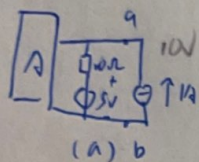 a
10V
A
10Ω
+
5V
↑1A
(a) b